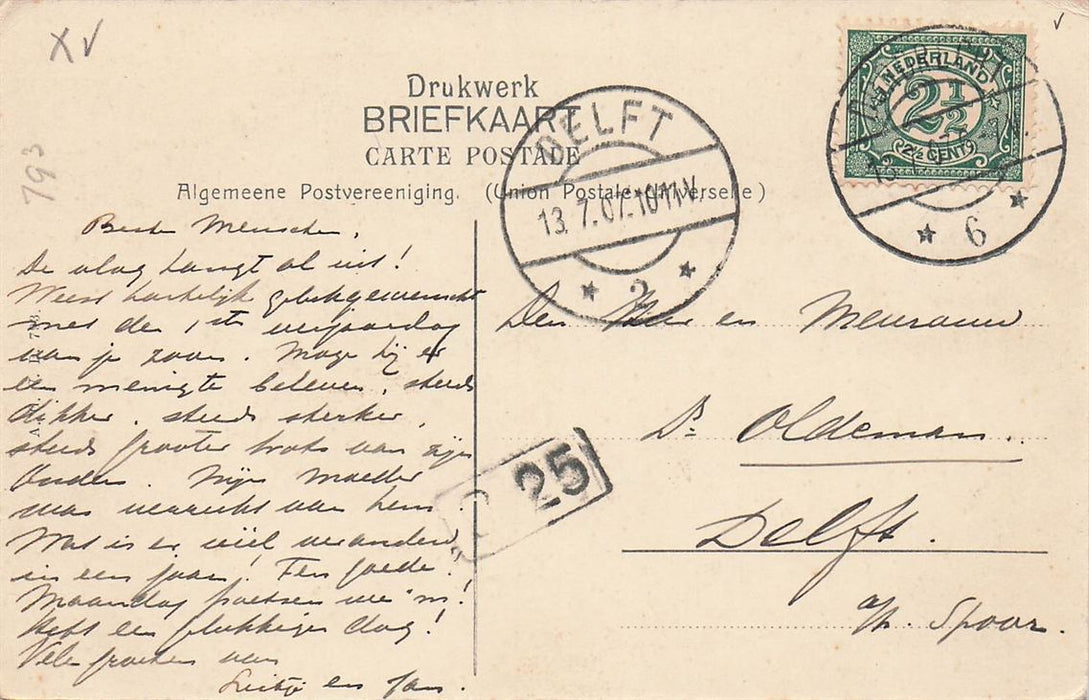 XV
793
Drukwerk
BRIEFKAART
CARTE POSTALE
Algemeene Postvereeniging. (Union Postale Universelle)
NEDERLAND
2½
2½ CENT
6
DELFT
13.7.07.10-11V.
2
25
Beste Menschen,
De vlag hangt al uit!
Weest hartelijk gelukgewenscht
met den 1sten verjaardag
van je zoon. Moge hij er
een menigte beleven, steeds
dikker, steeds sterker,
steeds grooter trots van zijn
Ouders. Mijn Moeder
was verrukt van hem!
Wat is er veel veranderd
in een jaar! Ten goede!
Maandag poetsen we 'm!
Hebt een gelukkigen dag!
Vele groeten van
en Jan.
Den Heer en Mevrouw
Dr. Oldeman.
Delft.
a/h. Spoor.